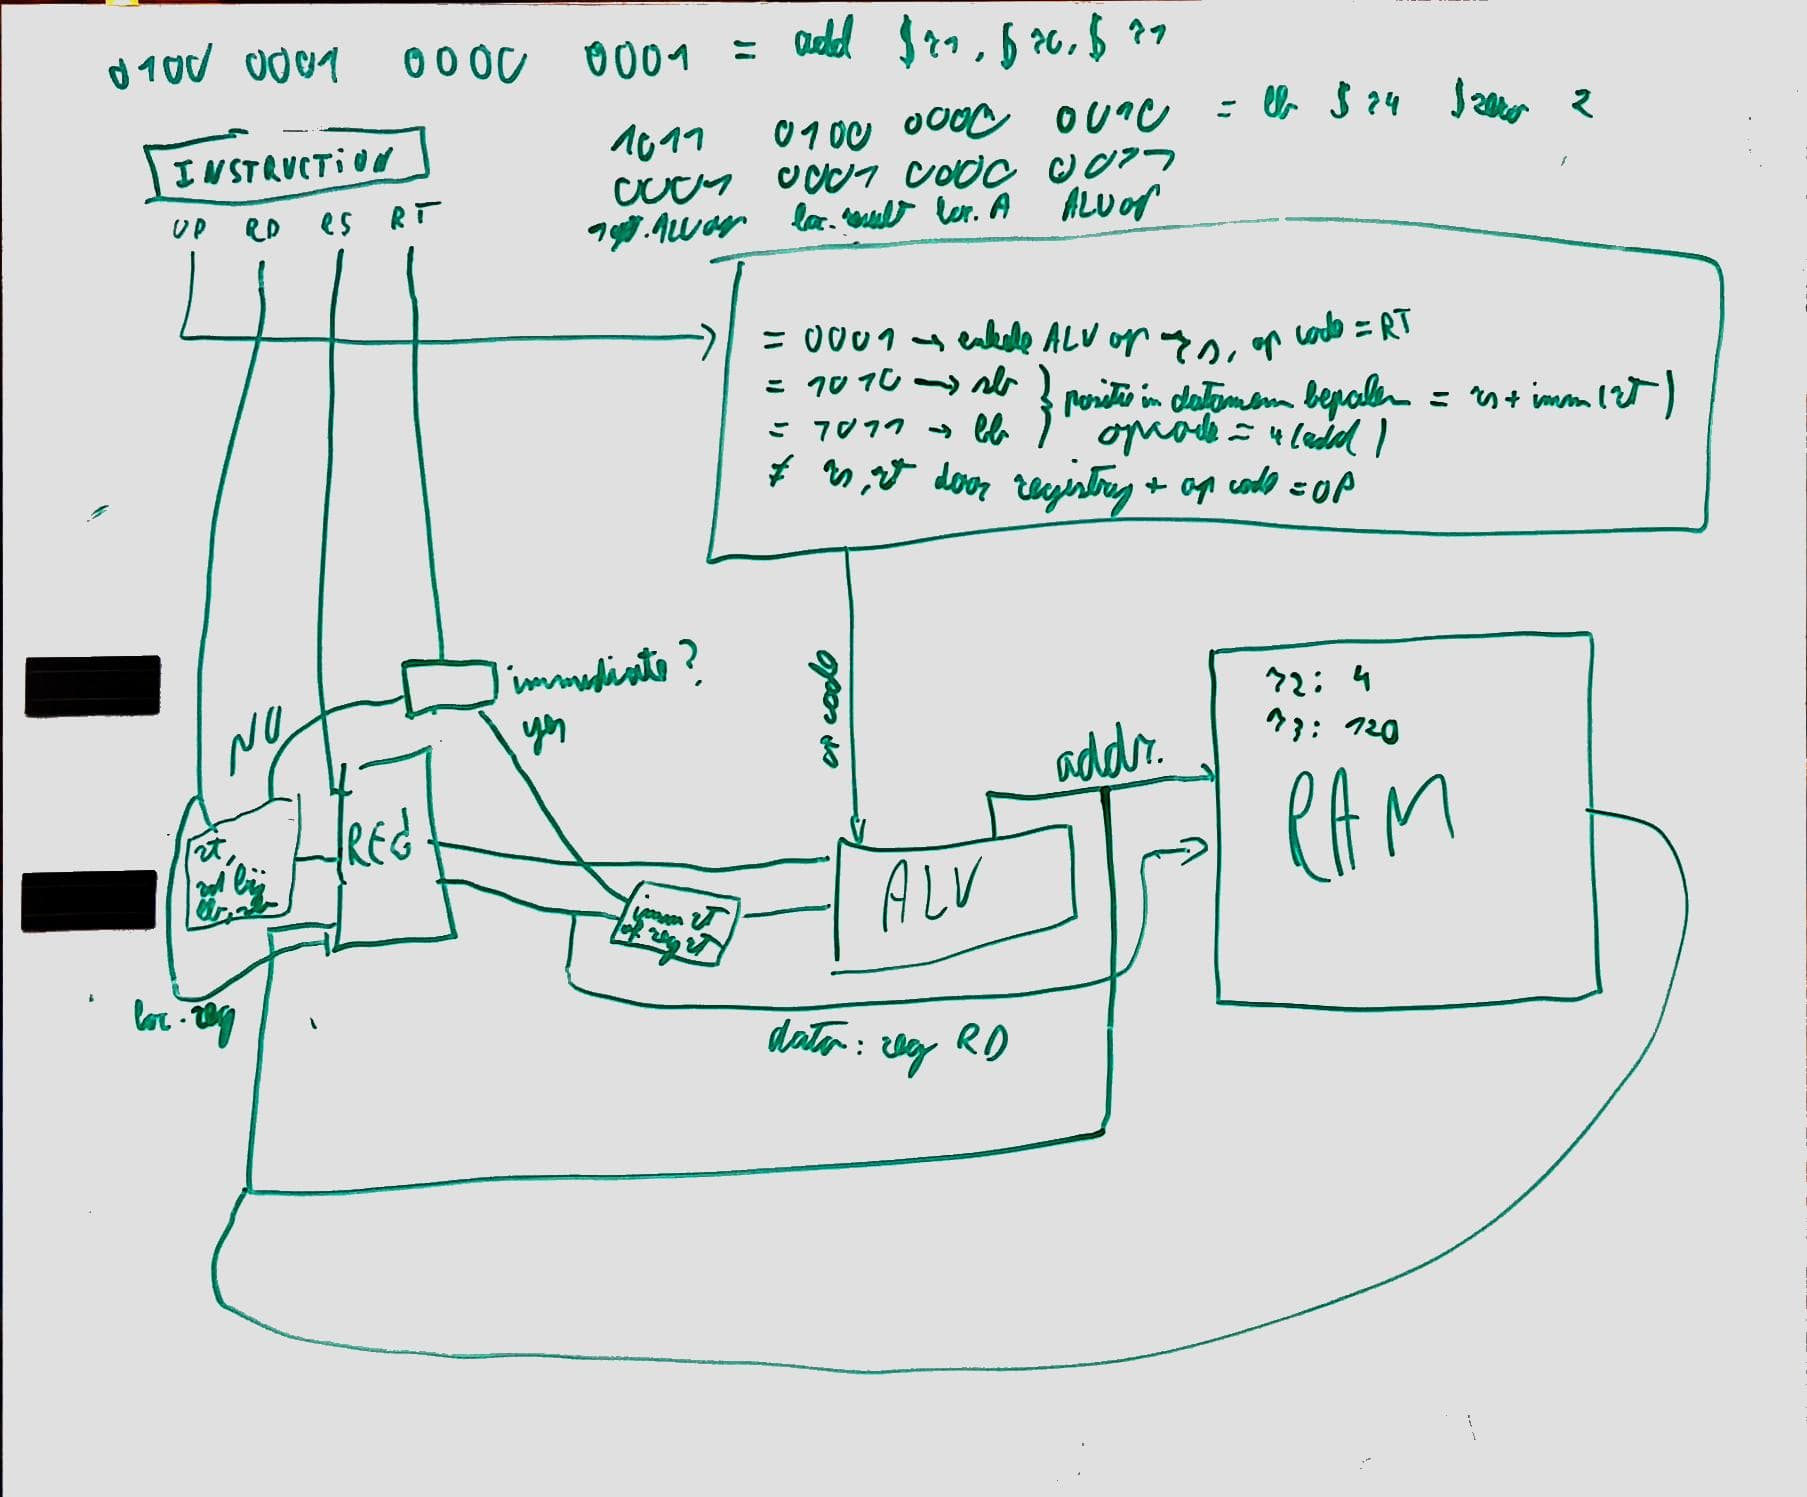 0100 0001 0000 0001 = add $r1, $r0, $r1
1011 0100 0000 0010 = lb $r4 $zero 2
0001 0001 0000 0011
loc. result loc. A ALU op
INSTRUCTION
OP RD RS RT
= 0001 → enkele ALU op rs, op code = RT
= 1010 → sb } positie in datamem bepalen = rs + imm (rt)
= 1011 → lb } opcode = 4 (add)
≠ rs, rt door registry + op code = OP
immediate?
NO
yes
op code
addr.
r2: 4
r3: 120
RAM
REG
rt,
rd bij
lb, sb
ALU
imm rt
of reg rt
loc. reg
data: reg RD